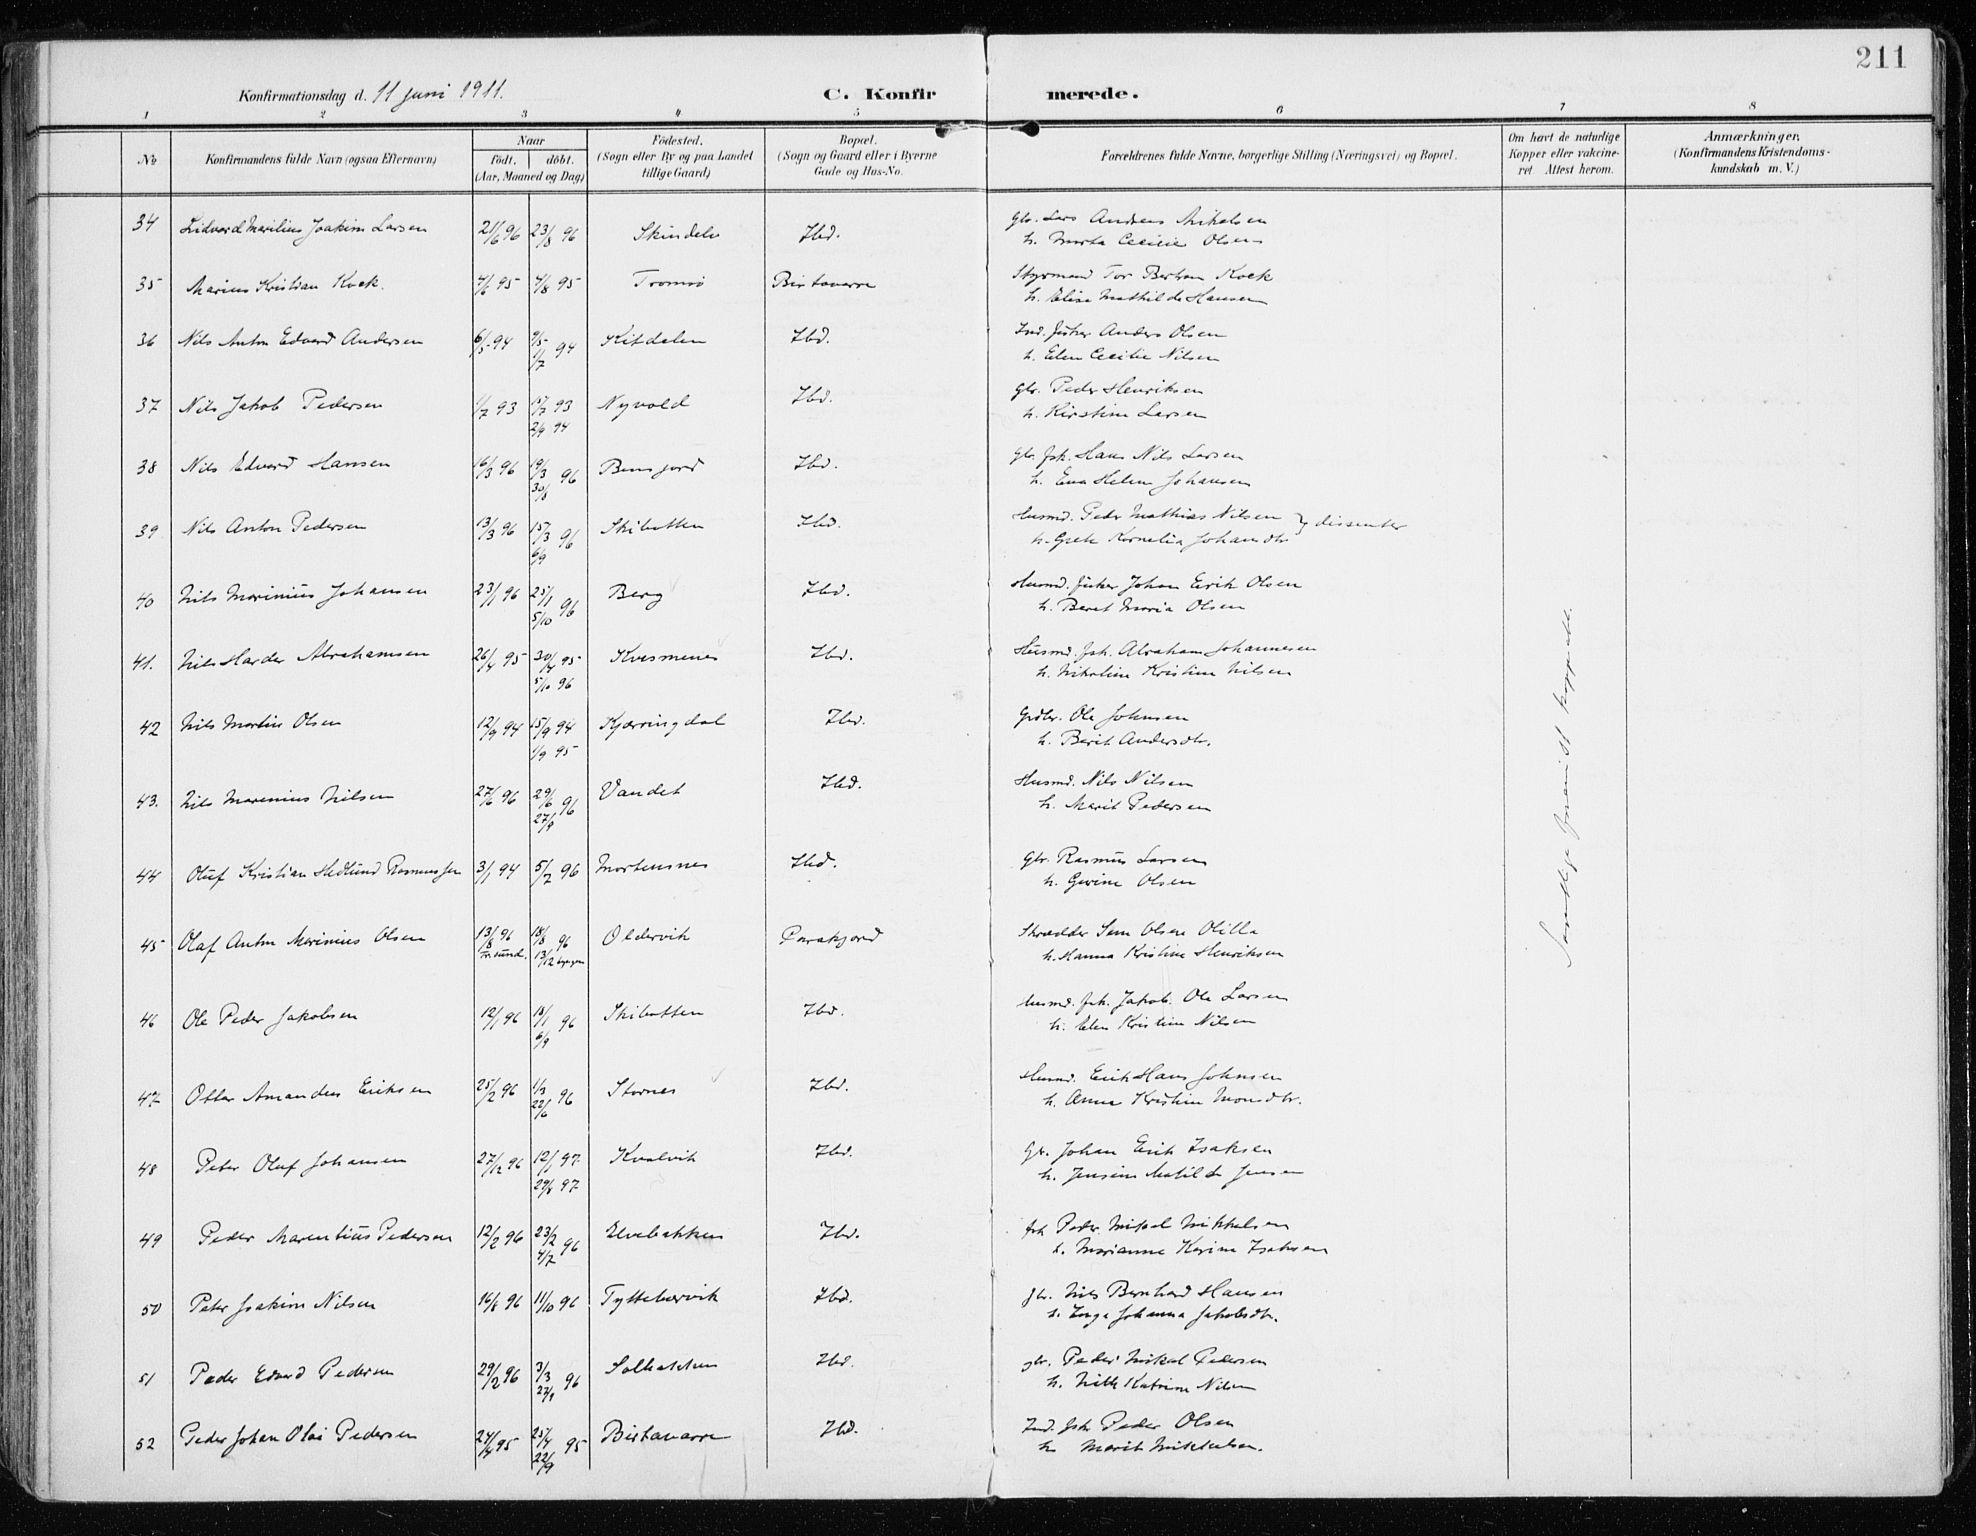 211
Konfirmationsdag d. 11 juni 1911. C. Konfirmerede.
1 2 3 4 5 6 7 8
No Konfirmandens fulde Navn (ogsaa Efternavn) Naar født, døbt. (Aar, Maaned og Dag) Fødested. (Sogn eller By og paa Landet tillige Gaard) Bopæl. (Sogn og Gaard eller i Byerne Gade og Hus-No. Forældrenes fulde Navne, borgerlige Stilling (Næringsvei) og Bopæl. Om havt de naturlige Kopper eller vakcineret. Attest herom. Anmærkninger. (Konfirmandens Kristendomskundskab m. V.)
34 Joakim Larsen 21/6 96 23/8 96 Skindelv Ibd. Gbr. Lars Andreas Mikelsen
h. Marta Cecilie Olsen
35 Marius Kristian Koek. 4/6 95 4/8 95 Tromsø Birtavarre Styrmand Tor Bertran Koek
h. Elise Mathilde Hansen
36 Nils Anton Edvard Andersen 6/5 94 9/5 1/7 94 Kitdalen Ibd. Ind. fisker Anders Olsen
h. Elen Cecilie Nilsen
37 Nils Jakob Pedersen 1/7 93 93 2/9 94 Nyvold Ibd. Gbr. Peder Henriksen
h. Kirstine Larsen
38 Nils Edvard Hansen 16/3 96 19/3 30/8 96 Bensjord Ibd. Gbr. fsk. Hans Nils Larsen
h. Eva Helene Johansen
39 Nils Anton Pedersen 13/3 96 15/3 6/9 96 Skibotten Ibd. Husmd. Peder Mathias Nilsen } dissenter
h. Grete Kornelia Johansdtr
40 Nils Marinius Johansen 23/1 96 25/1 5/10 96 Berg Ibd. Husmd. fisker Johan Erik Olsen
h. Beret Maria Olsen
41. Nils Harder Abrahamsen 26/4 95 30/4 95 5/10 96 Kvesmenes Ibd. Husmd. fsk. Abraham Johannesen
h. Nikoline Kristine Nilsen
42 Nils Martin Olsen 12/9 94 15/9 94 1/9 95 Kjærringdal Ibd. Grdbr. Ole Johnsen
h. Berit Andersdtr.
43. Nils Marenius Nilsen 27/6 96 29/6 27/9 96 Vandet Ibd. Husmd. Nils Nilsen
h. Marit Pedersen
44 Oluf Kristian Hedlund Rasmussen 3/1 94 5/2 96 Mortensnes Ibd. Gbr. Rasmus Larsen
h. Gurine Olsen
45 Olaf Anton Marinius Olsen 13/8 96 18/8 96 13/12 Oldervik Parakjord Skrædder Sem Olsen Olilla
h. Hanna Kristine Henriksen
46 Ole Peder Jakobsen 12/1 96 18/1 6/9 96 Skibotten Ibd. Husmd. fsk. Jakob Ole Larsen
h. Elen Kristine Nilsen
47 Otter Amandus Eriksen 25/2 96 1/3 22/6 96 Stornes Ibd. Husmd. Erik Hans Johnsen
h. Anna Kristine Monsdtr.
48 Peter Oluf Johansen 27/12 96 12/1 97 29/8 97 Kvalvik Ibd. Gbr. Johan Erik Isaksen
h. Jensine Matilde Jensen
49 Peder Marentius Pedersen 12/2 96 23/2 4/7 96 Elvebakken Ibd. fsk Peder Mikal Mikkelsen
h. Marianne Karine Isaksen
50 Peter Joakim Nilsen 16/8 96 11/10 96 Tyttebærvik Ibd. gbr. Nils Bernhard Hansen
h. Inga Johanna Jakobsdtr.
51 Peder Edvard Pedersen 29/2 96 3/3 96 Solbakken Ibd. gbr. Peder Mikal Pedersen
h. Katrine Nilsen
52 Peder Johan Olai Pedersen 24/4 95 25/4 22/9 95 Birtavarre Ibd. Ind. fsk Peder Olsen
h. Marit Mikkelsen.
Samtlige koppede.